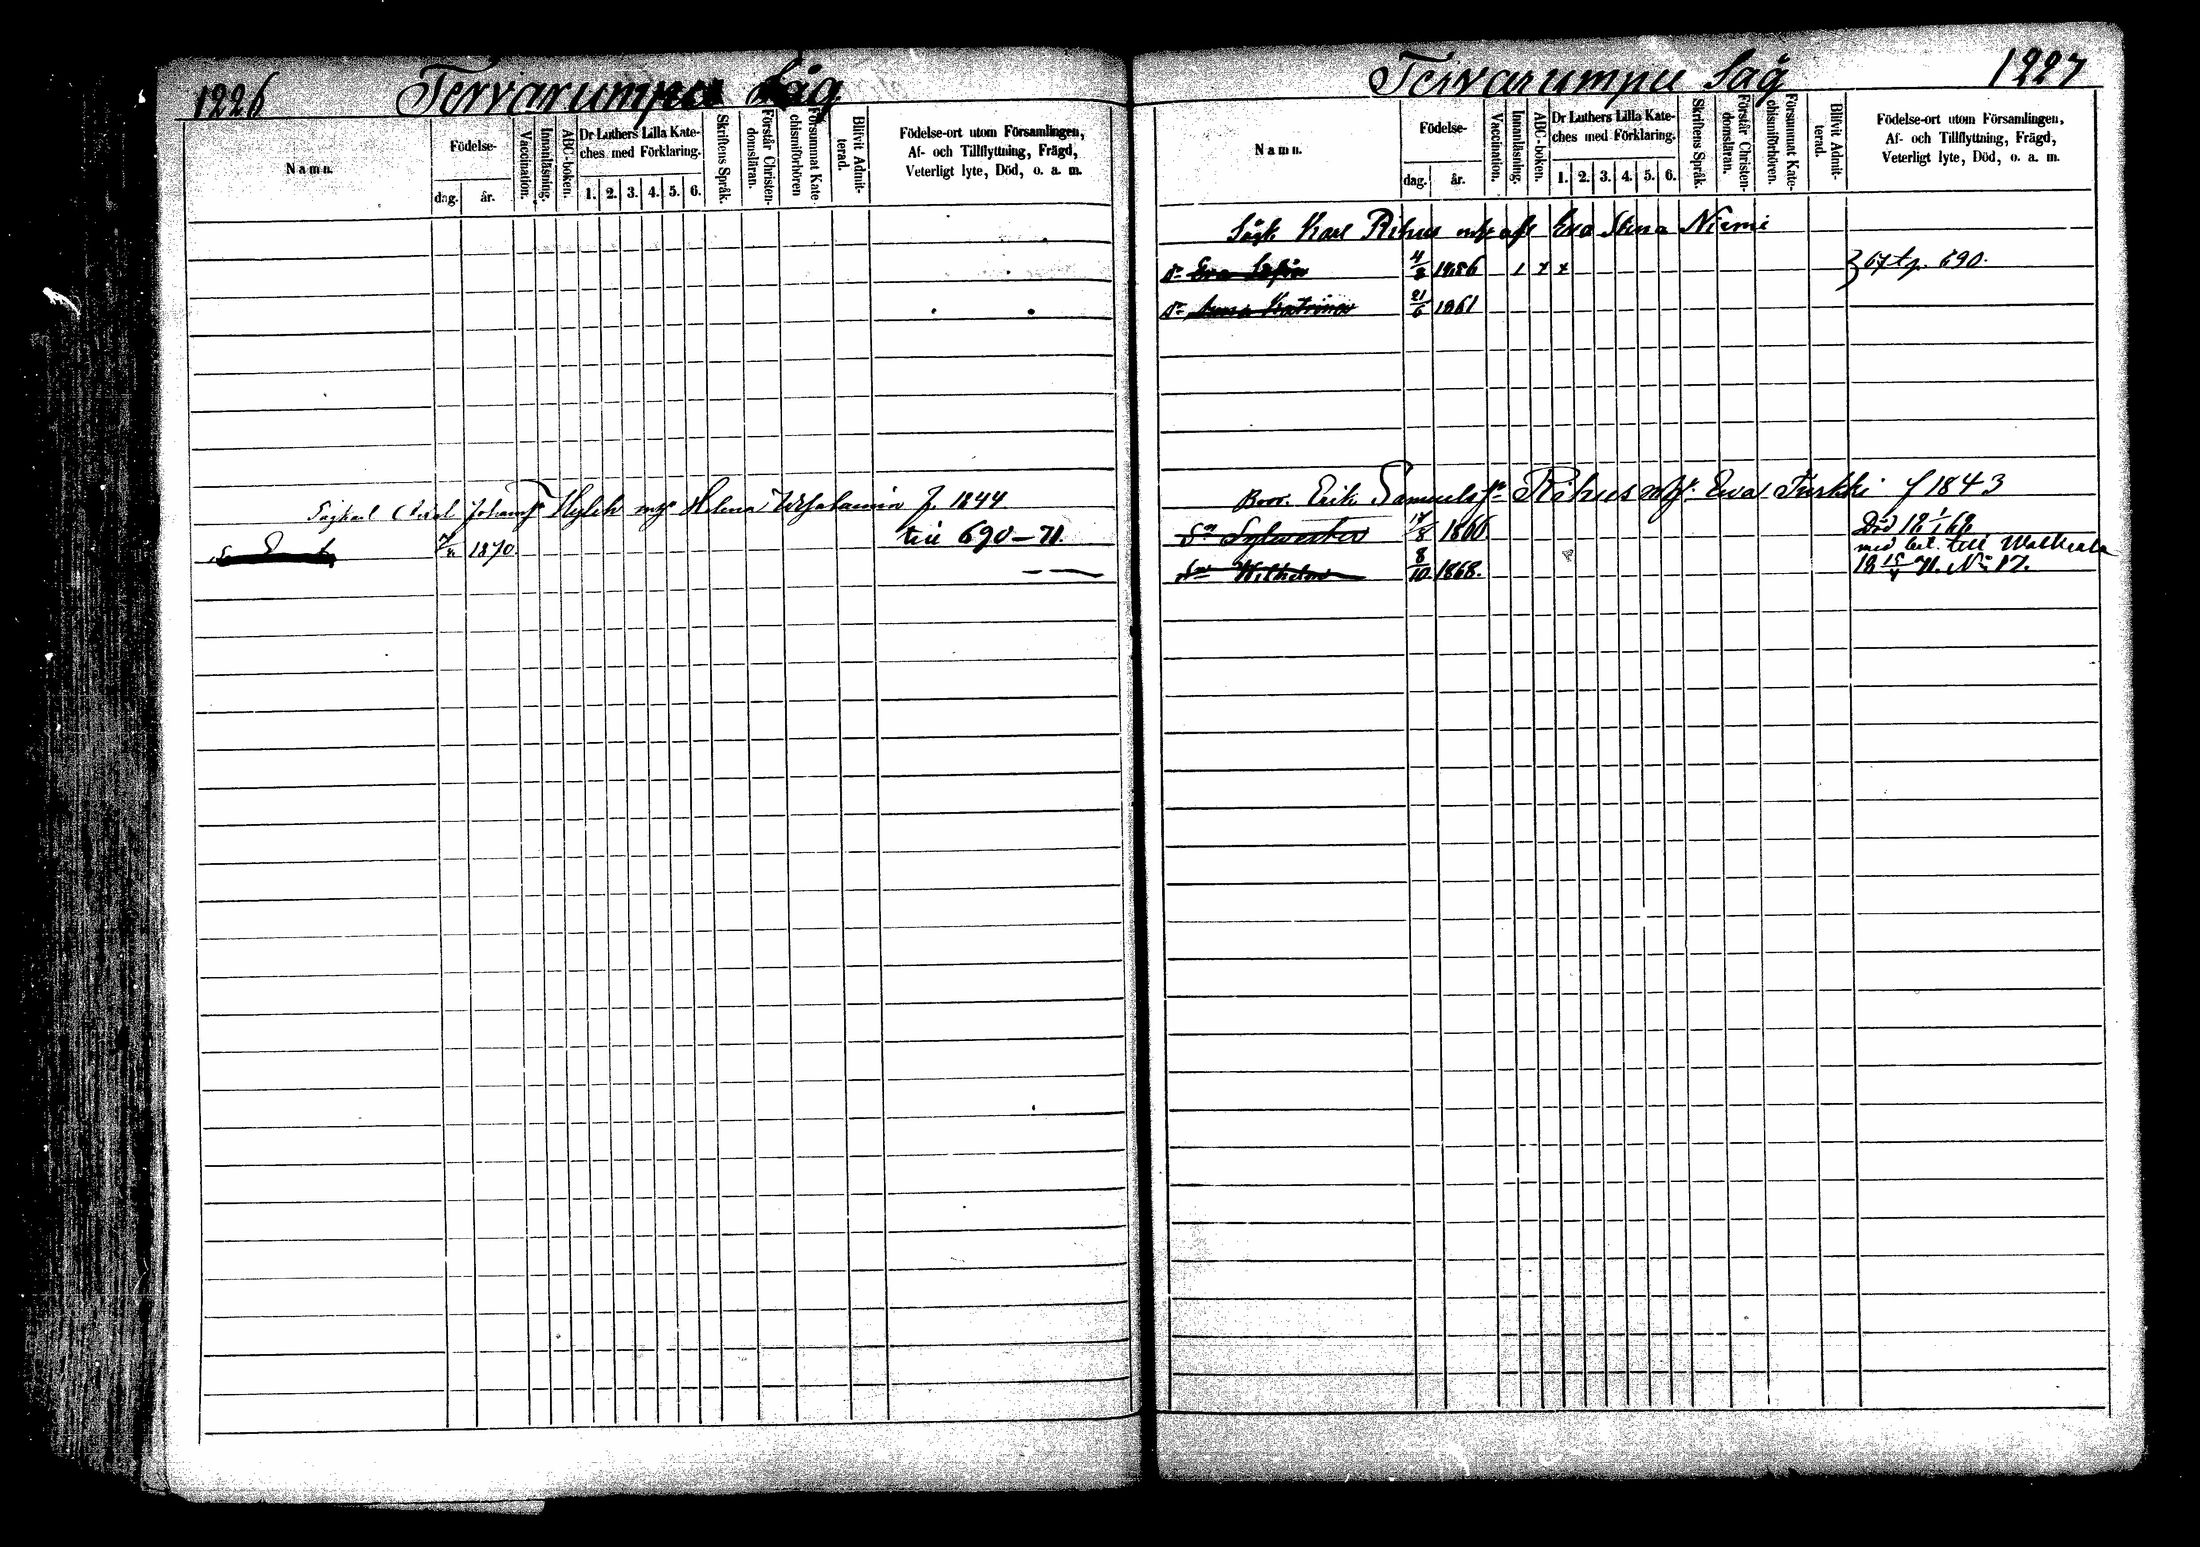 1226 Tervarumpu Såg
Namn.
Födelse-
dag. år.
Vaccination.
Innanläsning.
ABC-boken.
Dr Luthers Lilla Kate-
ches med Förklaring.
1. 2. 3. 4. 5. 6.
Skriftens Språk.
Förstår Christen-
domsläran.
Försummat Kate
chismiförhören
Blifvit Admit-
terad.
Födelse-ort utom Församlingen,
Af- och Tillflyttning, Frägd,
Veterligt lyte, Död, o. a. m.
Johans Helena f. 1844
till 690-71.
7/11 1870
Tervarumpu Såg 1227
Namn.
Födelse-
dag. år.
Vaccination.
Innanläsning.
ABC-boken.
Dr Luthers Lilla Kate-
ches med Förklaring.
1. 2. 3. 4. 5. 6.
Skriftens Språk.
Förstår Christen-
domsläran.
Försummat Kate-
chismiförhören.
Blifvit Admit-
terad.
Födelse-ort utom Församlingen,
Af- och Tillflyttning, Frägd,
Veterligt lyte, Död, o. a. m.
Sågk. Karl Rihu Eva Stina Niemi
Dr Eva 4/3 1856 1 x x 67 t. p. 690.
Dr Anna Katrina 21/6 1861
Erik Samuels Rihu Eva f 1843
Sn Sylvester 17/8 1866 Död 18 1/1 68
med bet. till Walkeala
Sn Wilhelm 8/10 1868. 18 15/4 71. No 17.